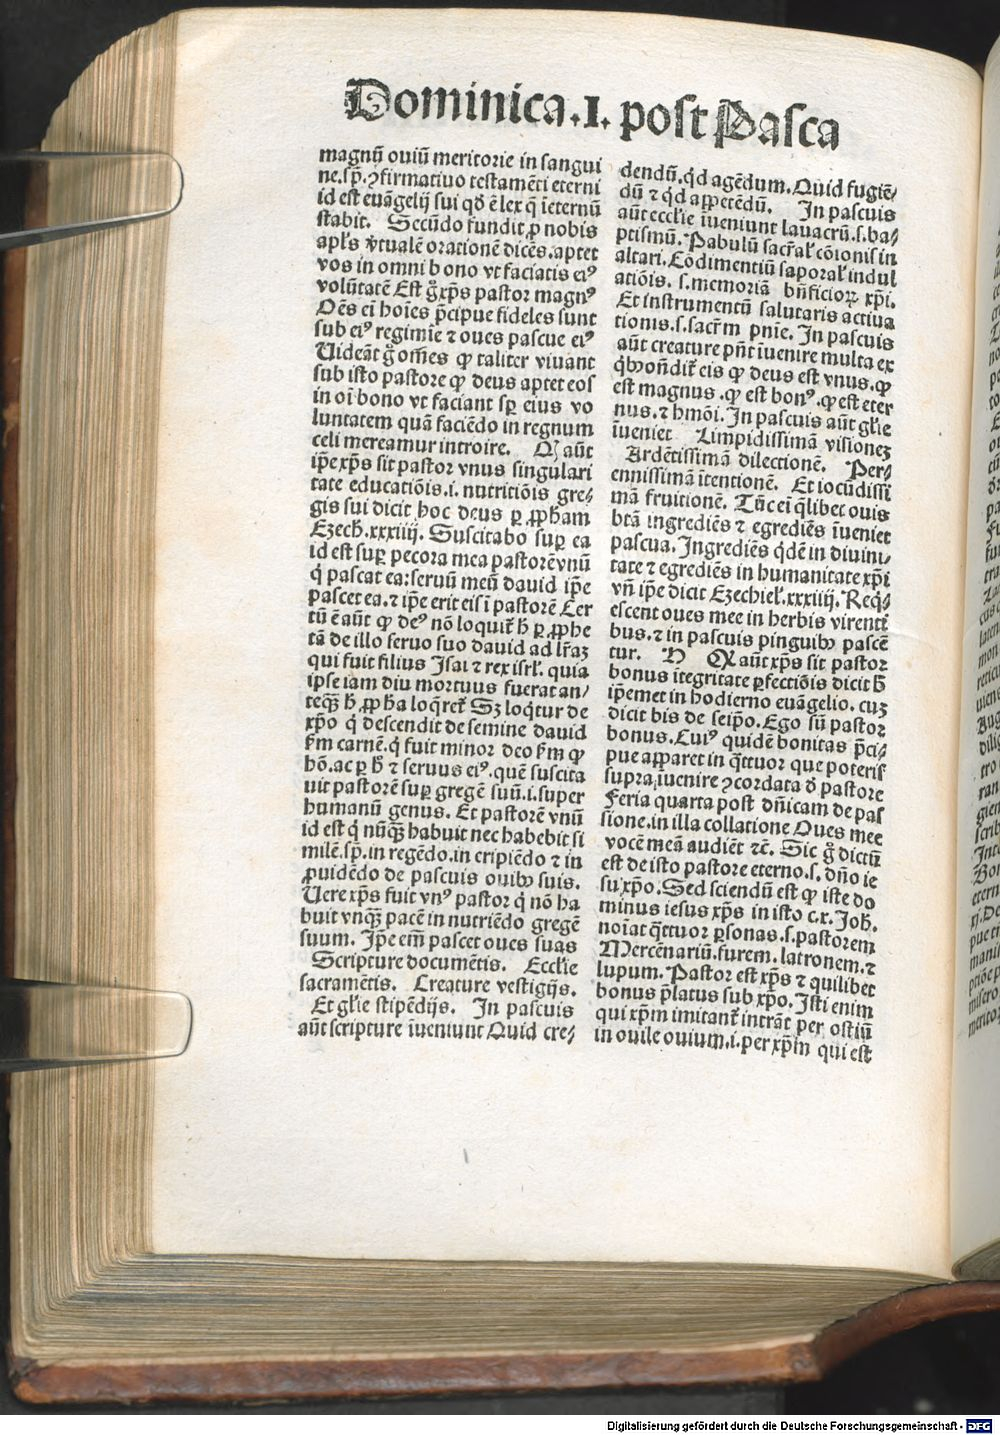 Dominica.I. post Pasca
magnū ouiū meritorie in sangui
ne.sp̄.ꝯfirmatiuo testamēti eterni
id est euāgelij sui qđ ē lex q̄ ieternū
stabit. Secūdo fundit ꝓ nobis
apl's v̓tualē orationē dicēs.aptet
vos in omni bono vt faciatis eiꝰ
volūtatē Est g̊ xp̄s pastor magnꝰ
Oēs eī hoīes p̄cipue fideles sunt
sub eiꝰ regimīe ⁊ oues pascue eiꝰ
Uideāt g̊ om̄es ꝙ taliter viuant
sub isto pastore ꝙ deus aptet eos
in oī bono vt faciant sp̄ eius vo
luntatem quā faciēdo in regnum
celi mereamur introire. Q aūt
ip̄e xp̄s sit pastor vnus singulari
tate educatiōis.i. nutritiōis gre⸗
gis sui dicit hoc deus ꝑ ꝓpham
Ezech.xxxiiij. Suscitabo suꝑ ea
id est suꝑ pecora mea pastorē vnū
q̓ pascat ea:seruū meū dauid ip̄e
pascet ea.⁊ ip̄e erit eis ī pastorē Cer
tū ē aūt ꝙ deꝰ nō loquit̄ h̄ ꝑ ꝓphe
tā de illo seruo suo dauid ad lr̄aꝫ
qui fuit filius Isai ⁊ rex isrl'. quia
ipse iam diu mortuus fuerat an⸗
teqꝫ̄ h̄ ꝓpha loq̄ret̄ Sꝫ loq̄tur de
xp̄o q̓ descendit de semine dauid
s̄m carnē.q̓ fuit minor deo s̄m ꝙ
hō.ac ꝑ h̄ ⁊ seruus eiꝰ.quē suscita
uit pastorē suꝑ gregē suū.i.super
humanū genus. Et pastorē vnū
id est q̓ nūqꝫ̄ habuit nec habebit si
milē.sp̄.in regēdo.in eripiēdo ⁊ in
ꝓuidēdo de pascuis ouibꝰ suis.
Uere xp̄s fuit vnꝰ pastor q̓ nō ha
buit vnqꝫ̄ pacē in nutriēdo gregē
suum. Ip̄e em̄ pascet oues suas
Scripture documētis. Eccl'ie
sacramētis. Creature vestigijs.
Et gl'ie stipēdijs. In pascuis
aūt scripture īueniunt Quid cre⸗
dendū.qd̓ agēdum.Quid fugiē⸗
dū ⁊ qd̓ appetēdū. In pascuis
aūt eccl'ie īueniunt lauacrū.s.ba⸗
ptismū. Pabulū sacr̄al' cōionis in
altari. Cōdimentiū saporal' indul
atiōis. s.memoriā bn̄ficioꝝ xp̄i.
Et instrumentū salutaris actiua
tionis.s.sacr̄m pnīe. In pascuis
aūt creature pn̄t īuenire multa ex
q̓bꝰ ondit̄ eis ꝙ deus est vnus.ꝙ
est magnus.ꝙ est bonꝰ.ꝙ est eter
nus.⁊ hmōi. In pascuis aūt gl'ie
īueniet Limpidissimā visioneꝫ
Ardētissimā dilectionē. Per⸗
ennissimā ītentionē. Et iocūdissi
mā fruitionē. Tūc eī q̄libet ouis
btā ingrediēs ⁊ egrediēs īueniet
pascua. Ingrediēs qd̓ē in diuini⸗
tate ⁊ egrediēs in humanitate xp̄i
vn̄ ip̄e dicit Ezechiel'.xxxiiij. Req̓⸗
escent oues mee in herbis virenti
bus.⁊ in pascuis pinguibꝰ pascē
tur. H Q aūt xp̄s sit pastor
bonus ītegritate ꝑfectiōis dicit h̄
ip̄emet in hodierno euāgelio. cuꝫ
dicit bis de seip̄o. Ego sū pastor
bonus. Cuiꝰ quidē bonitas p̄ci⸗
pue apparet in q̄ttuor que poteris
supra īuenire ꝯcordata d̓ pastore
Feria quarta post dn̄icam de pas
sione.in illa collatione Oues mee
vocē meā audiēt ⁊c̄. Sic g̊ dictū
est de isto pastore eterno.s. dn̄o ie
su xp̄o. Sed sciendū est ꝙ iste do
minus iesus xp̄s in isto c.x. Joh.
noīat q̄ttuor ꝑsonas.s.pastorem
Mercēnariū.furem. latronem.⁊
lupum. Pastor est xp̄s ⁊ quilibet
bonus p̄latus sub xp̄o. Isti enim
qui xp̄m imitant̄ intrāt per ostiū
in ouile ouium.i.per xp̄m qui est
Digitalisierung gefördert durch die Deutsche Forschungsgemeinschaft - DFG